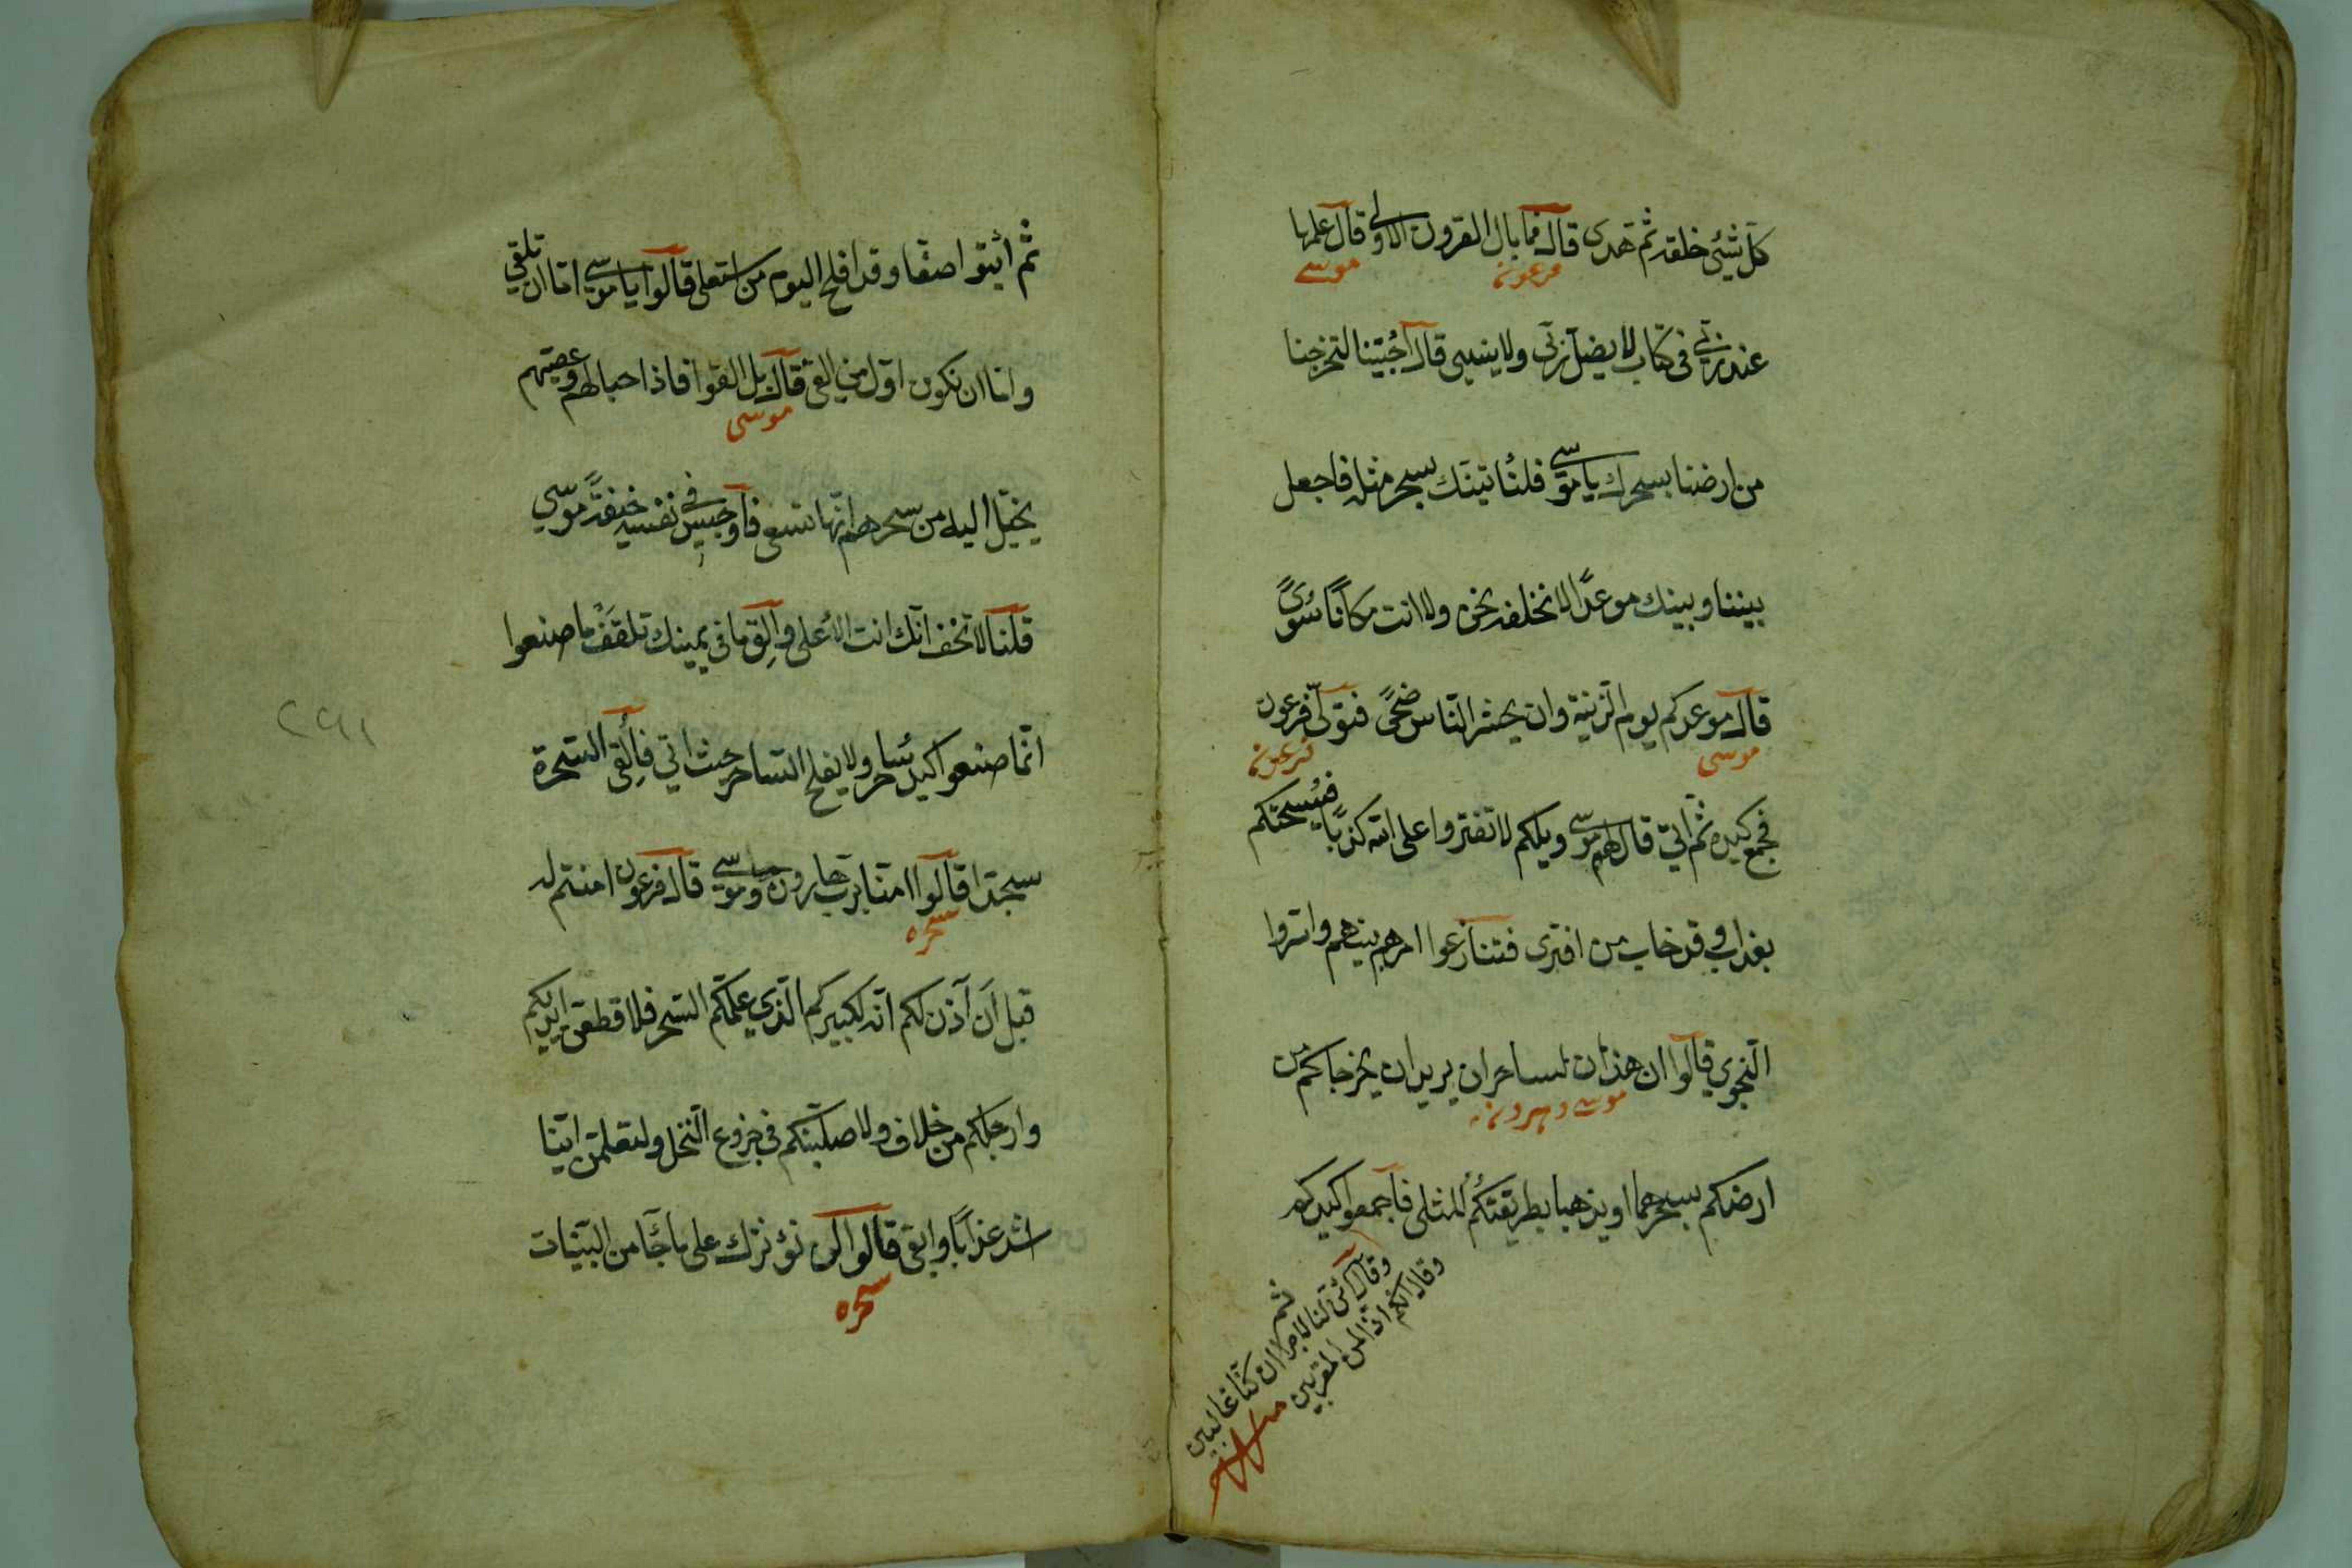 كلّ شيئ خلقه ثم هدى قال فما بال القرون الاولى قال علمها
فرعون موسى
عند ربّي في كتاب لا يضلّ ربّي ولا ينسى قال اجئتنا لتخرجنا
من ارضنا بسحرك يا موسى فلنأتينّك بسحر مثله فاجعل
بيننا وبينك موعدًا لا نخلفه نحن ولا انت مكانًا سُوىً
قال موعدكم يوم الزّينة وان يحشر النّاس ضحىً فتولّى فرعون
موسى فرعون
فجمع كيده ثم اتى قال لهم موسى ويلكم لا تفتروا على الله كذبًا فيُسحتكم
بعذاب وقد خاب من افترى فتنازعوا امرهم بينهم واسروا
النّجوى قالوا ان هذان لساحران يريدان يخرجاكم من
موسى وهرون
ارضكم بسحرهما ويذهبا بطريقتكُمُ المثلى فاجمعوا كيدكم
ثم
وقال ائنّ لنا لاجرا ان كنّا غالبين
وقال انكم اذا لمن المقربين
ثم ائتوا صفّا وقد افلح اليوم من استعلى قالوا يا موسى امّا ان تلقي
وامّا ان نكون اوّل من القى قال بل القوا فاذا حبالهم وعصيّهم
موسى
يخيّل اليه من سحرهم انّها تسعى فاوجس في نفسه خيفةً موسى
قلنا لا تخف انّك انت الأعلى والقِ ما في يمينك تلقَفْ ما صنعوا
انّما صنعوا كيد ساحر ولا يفلح السّاحر حيث اتى فأُلقي السّحرة
سجّدا قالوا امنّا بربّ هارون وموسى قال فرعون امنتم له
سحره
قبل اَن آذن لكم انّه لكبيركم الّذي علّمكم السّحر فلاقطّعنّ ايديكم
وارجلكم من خلاف ولاصلّبنّكم في جذوع النّخل ولتعلمنّ ايّنا
اشد عذابًا وابقى قالوا لن نؤثرك على ما جآءنا من البيّنات
سحره
٢٩١